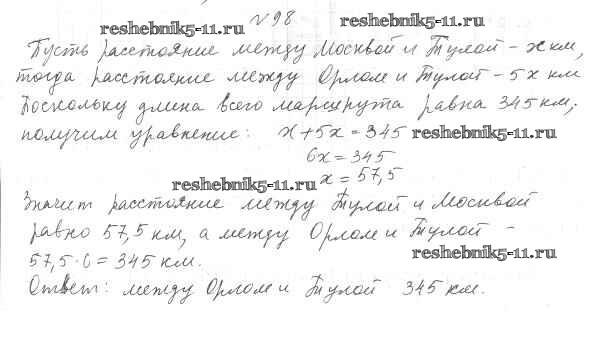 № 98 reshebnik5-11.ru
reshebnik5-11.ru
Пусть расстояние между Москвой и Тулой - x км,
тогда расстояние между Орлом и Тулой - 5x км
Поскольку длина всего маршрута равна 345 км,
получим уравнение: x + 5x = 345 reshebnik5-11.ru
6x = 345
reshebnik5-11.ru x = 57,5
Значит расстояние между Тулой и Москвой
равно 57,5 км, а между Орлом и Тулой -
57,5 · 6 = 345 км. reshebnik5-11.ru
Ответ: между Орлом и Тулой 345 км.